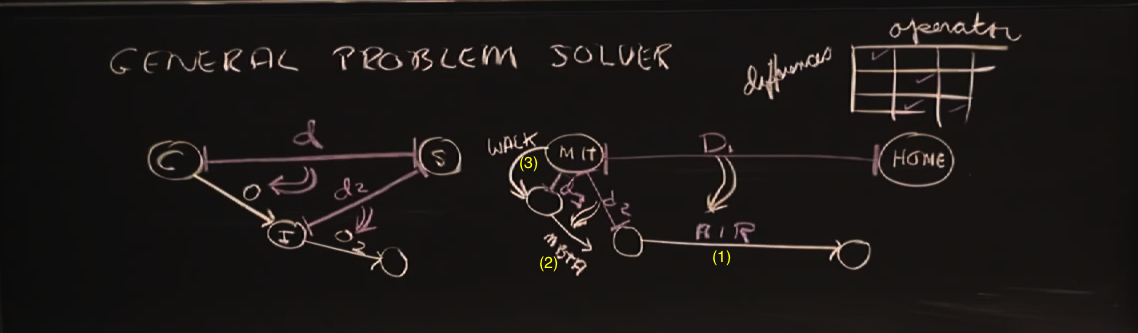 GENERAL PROBLEM SOLVER
operator
differences
C
d
S
O
d2
I
O2
WALK
(3)
MIT
D1
HOME
d3
d2
MBTA
(2)
AIR
(1)